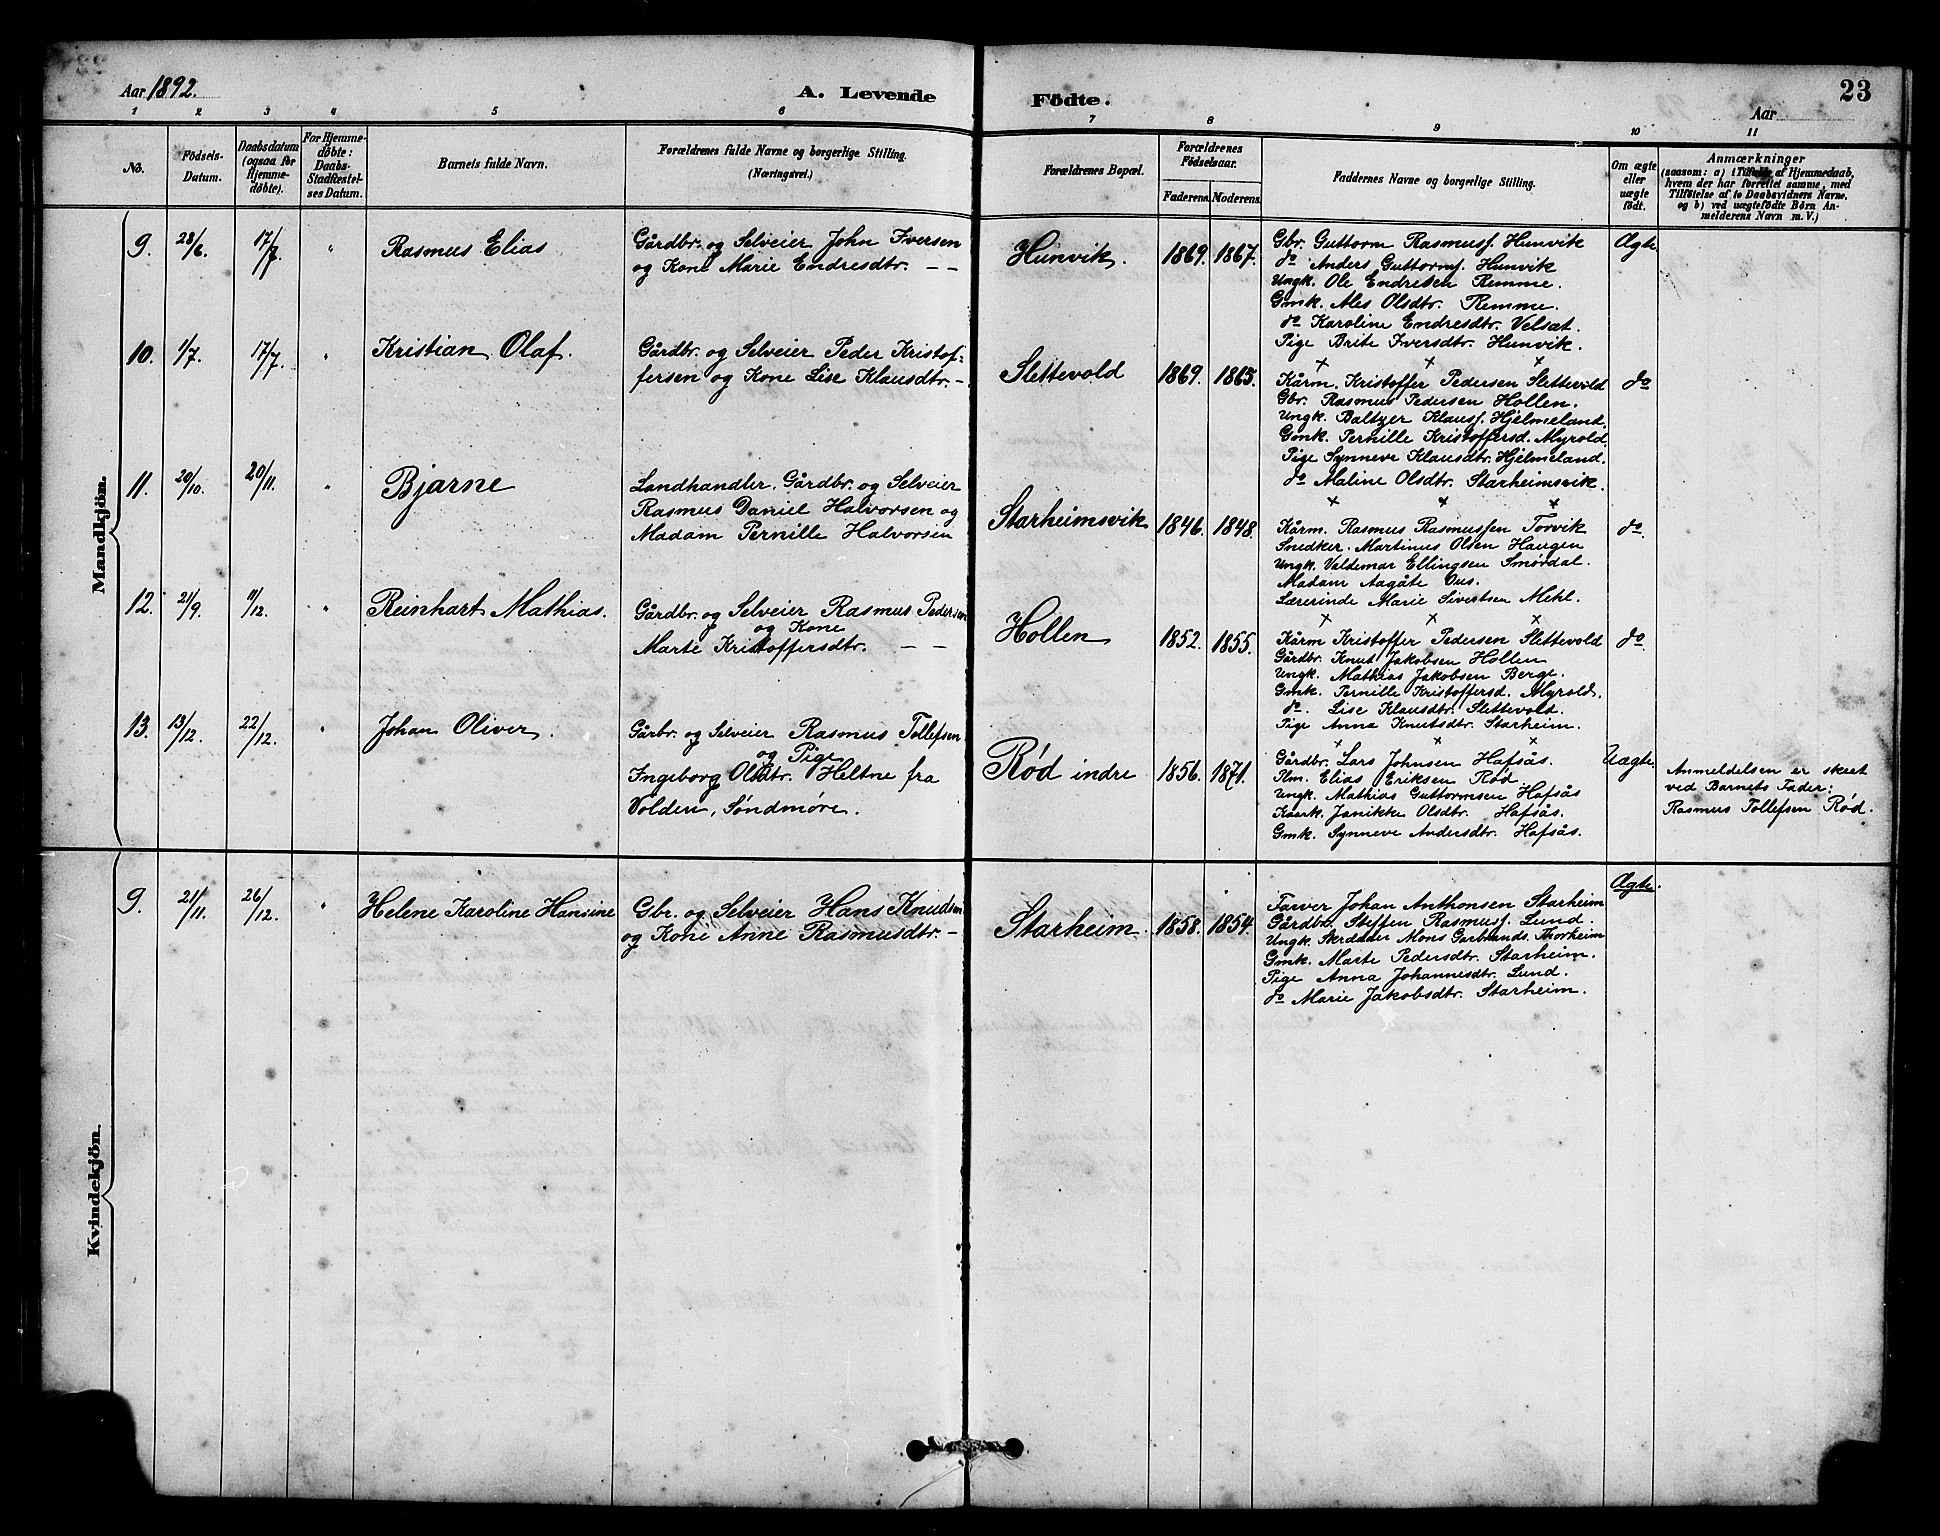 Aar 1892.
A. Levende Födte.
Aar
23
1 2 3 4 5 6 7 8 9 10 11
No.
Födsels-
Datum.
Daabsdatum
(ogsaa for
Hjemme-
döbte).
For Hjemme-
döbte:
Daabs-
Stadfæstel-
ses Datum.
Barnets fulde Navn.
Forældrenes fulde Navne og borgerlige Stilling.
(Næringsvei.)
Forældrenes Bopæl.
Forældrenes
Födselsaar.
Faderens. Moderens.
Faddernes Navne og borgerlige Stilling.
Om ægte
eller
uægte
födt.
Anmærkninger
(saasom: a) i Tilfælde af Hjemmedaab,
hvem der har forrettet samme, med
Tilföielse af to Daabsvidners Navne,
og b) ved uægtefödte Börn An-
melderens Navn m. V.)
Mandkjön.
9. 28/6. 17/7. " Rasmus Elias
Gårdbr. og Selveier John Iversen
og Kone Marie Endresdtr. — —
Hunvik. 1869. 1867.
Gbr. Guttorm Rasmussf. Hunvik
do Anders Guttormsf. Hunvik
Ungk. Ole Endresen Remme.
Gmk. Ales Olsdtr. Remme.
do Karoline Endresdtr. Velsæt.
Pige Brite Iversdtr. Hunvik.
Ægte
10. 1/7. 17/7. " Kristian Olaf.
Gårdbr. og Selveier Peder Kristof-
fersen og Kone Lise Klausdtr. -
Slettevold 1869. 1865.
+ + +
Kårm. Kristoffer Pedersen Slettevold
Gbr. Rasmus Pedersen Hollen.
Ungk. Baltzer Klausf. Hjelmeland.
Gmk. Pernille Kristoffersd. Myrold.
Pige Synneve Klausdtr. Hjelmeland.
do Maline Olsdtr. Starheimsvik.
do
11. 20/10. 20/11. " Bjarne
Landhandler, Gårdbr. og Selveier
Rasmus Daniel Halvorsen og
Madam Pernille Halvorsen
Starheimsvik 1846. 1848.
+ + +
Kårm. Rasmus Rasmussen Torvik
Snedker. Martinus Olsen Haugen
Ungk. Valdemar Ellingsen Smørdal.
Madam Aagåte Ous.
Lærerinde Marie Sivertsen Mekl.
do.
12. 21/9. 11/12. " Reinhart Mathias.
Gårdbr. og Selveier Rasmus Pedersen
og Kone
Marte Kristoffersdtr. — —
Hollen 1852. 1855.
+ + +
Kårm Kristoffer Pedersen Slettevold
Gårdbr. Knut Jakobsen Hollen
Ungk. Mathias Jakobsen Berge.
Gmk. Pernille Kristoffersd. Myrold.
do. Lise Klausdtr. Slettevold.
Pige Anna Knutsdtr. Starheim.
do
13. 13/12. 22/12. " Johan Oliver.
Gårbr. og Selveier Rasmus Tollefsen
og Pige
Ingeborg Olsdtr. Heltne fra
Volden, Søndmøre.
Rød indre 1856. 1871.
+ + +
Gårdbr. Lars Johnsen Hafsås.
Plm. Elias Eriksen Rød.
Ungk. Mathias Guttormsen Hafsås
Kaark. Janikke Olsdtr. Hafsås.
Gmk. Synneve Andersdtr. Hafsås.
Uægte.
Anmeldelsen er skeet
ved Barnets Fader:
Rasmus Tollefsen Rød.
Kvindekjön.
9. 21/11. 26/12. " Helene Karoline Hansine
Gbr. og Selveier Hans Knudsen
og Kone Anne Rasmusdtr. -
Starheim. 1858. 1854.
Farver Johan Anthonsen Starheim
Gårdbr. Steffen Rasmusf. Lund.
Ungk. Skrdder Mons Garbrands. Thorheim
Gmk. Marte Pedersdtr. Starheim.
Pige Anna Johannesdtr. Lund.
do Marie Jakobsdtr. Starheim.
Ægte.